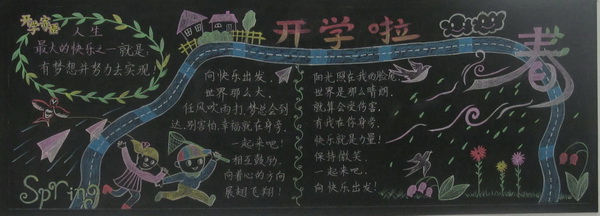 开学寄语
人生
最大的快乐之一就是,
有梦想并努力去实现
开学啦
春
向快乐出发,
世界那么大,
任风吹雨打,梦总会到
达,别害怕,幸福就在身旁,
一起来吧!
相互鼓励,
向着心的方向
展翅飞翔!
阳光照在我的脸庞
世界是那么晴朗,
就算会受伤害,
有我在你身旁,
快乐就是力量!
保持微笑,
一起来吧,
向快乐出发!
Spring